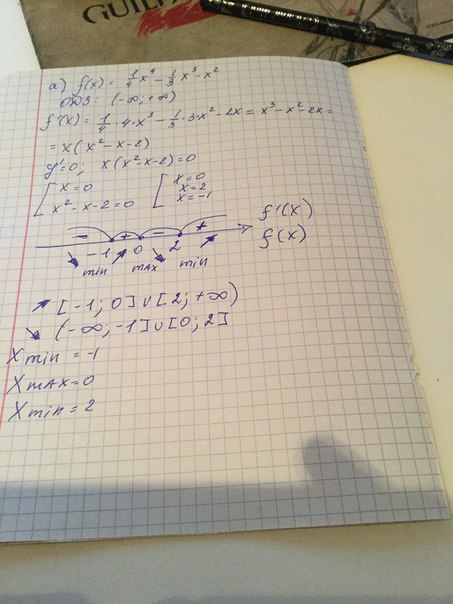 GUIL
а) f(x) = 1/4 x⁴ - 1/3 x³ - x²
ОДЗ: (-∞; +∞)
f'(x) = 1/4 · 4 · x³ - 1/3 · 3 · x² - 2x = x³ - x² - 2x =
= x(x² - x - 2)
y' = 0; x(x² - x - 2) = 0
[ x = 0 [ x = 0
x² - x - 2 = 0 x = 2
x = -1
- + - + f'(x)
-1 0 2 f(x)
↘ min ↗ max ↘ min ↗
↗ [-1; 0] ∪ [2; +∞)
↘ (-∞; -1] ∪ [0; 2]
X min = -1
X max = 0
X min = 2